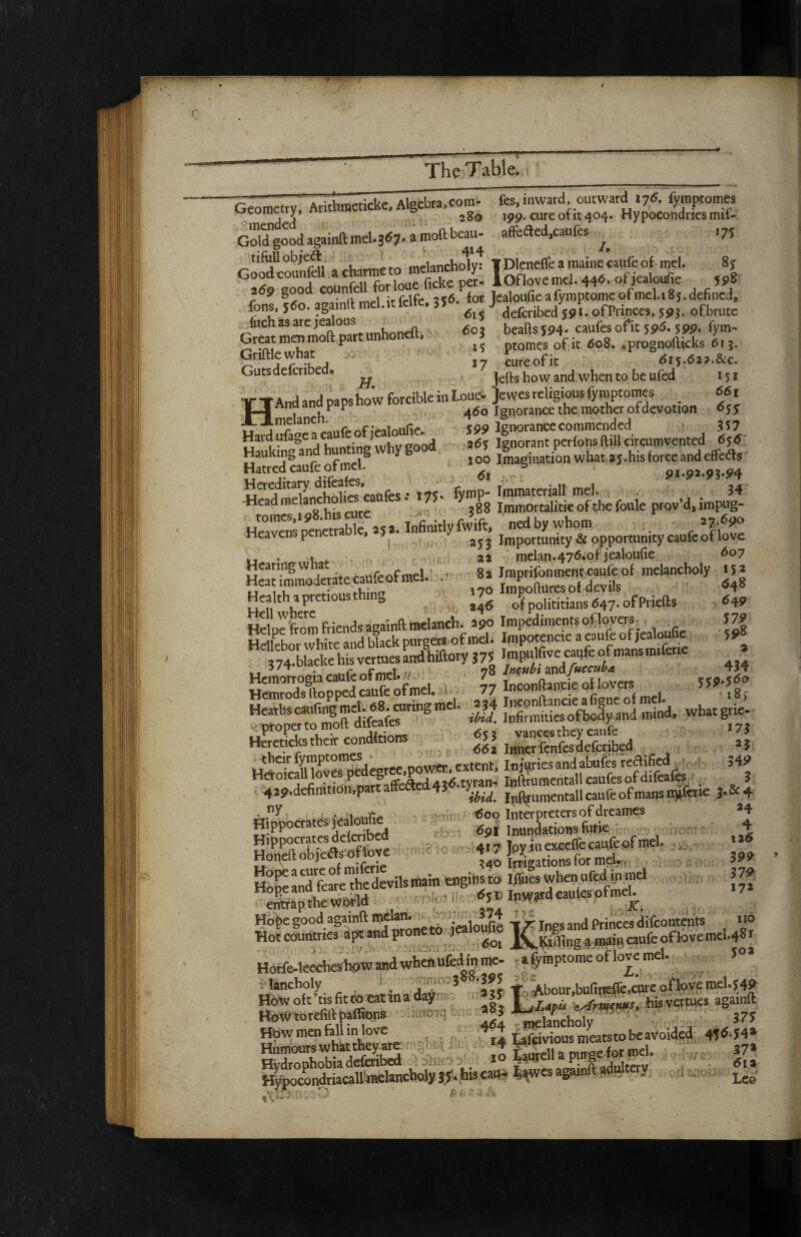 The Table.
Geometry, Arithmeticke, Algebra, com-
mended 280
Gold good against mel. 367. a most beau-
tifull object 414
Good counsell a charme to melancholy:
269 good counsell for loue sicke per-
sons, 560. against mel. it selfe, 356. for
such as are jealous 615
Great men most part unhonest, 603
Gristle what 15
Guts described, 17
H.
HAnd and paps how forcible in Loue-
melanch. 460
Hard usage a cause of jealousie. 599
Hauking and hunting why good 265
Hatred cause of mel. 100
Hereditary diseases, 61
Head melancholies causes: 175. symp-
tomes, 198. his cure 388
Heavens penetrable, 252. Infinitly swift,
253
Hearing what 22
Heat immoderate cause of mel. 82
Health a pretious thing 170
Hell where 246
Helpe from friends against melanch. 290
Hellebor white and black purgers of mel.
374. blacke his vertues and history 375
Hemorrogia cause of mel. 78
Hemrods stopped cause of mel. 77
Hearbs causing mel. 68. curing mel. 234
proper to most diseases ibid.
Hereticks their conditions 653
their symptomes 662
Heroicall loves pedegree, power, extent,
429. definition, part affected 436. tyran-
ny ibid.
Hippocrates jealousie 600
Hippocrates described 691
Honest objects of love 417
Hope a cure of miserie 340
Hope and feare the devils main engins to
entrap the world 651
Hope good against melan. 374
Hot countries apt and prone to jealousie
601
Horse-leeches how and when used in me-
lancholy 388.395
How oft 'tis fit to eat in a day 235
How to resist passions 283
How men fall in love 464
Humours what they are 14
Hydrophobia described 10
Hypocondriacall melancholy 35. his cau-
ses, inward, outward 176. symptomes
199. cure of it 404. Hypocondries mis-
affected, causes 175
I.
IDlenesse a maine cause of mel. 85
Of love mel. 446. of jealousie 598
Jealousie a symptome of mel. 185. defined,
described 591. of Princes, 593. of brute
beasts 594. causes of it 596. 599. sym-
ptomes of it 608. prognosticks 613.
cure of it 615.622.&c.
Jests how and when to be used 151
Jewes religious symptomes 661
Ignorance the mother of devotion 655
Ignorance commended 357
Ignorant persons still circumvented 656
Imagination what 25. his force and effects
91.92.93.94
Immateriall mel. 34
Immortalitie of the soule prov'd, impug-
ned by whom 27.690
Importunity & opportunity cause of love
melan. 476. of jealousie 607
Imprisonment cause of melancholy 152
Impostures of devils 648
of polititians 647. of Priests 649
Impediments of lovers 579
Impotencie a cause of jealousie 598
Impulsive cause of mans miserie 2
Incubi and succubæ 434
Inconstancie of lovers 559.560
Inconstancie a signe of mel. 185
Infirmities of body and mind, what grie-
vances they cause 173
Inner senses described 23
Injuries and abuses rectified 349
Instrumentall causes of diseases 3
Instrumentall cause of mans miserie 3.& 4
Interpreters of dreames 24
Inundations furie 4
Joy in excesse cause of mel. 126
Irrigations for mel. 399
Issues when used in mel 379
Inward causes of mel. 172
K.
KIngs and Princes discontents 110
Kissing a main cause of love mel. 481
a symptome of love mel. 502
L.
LAbour, businesse, cure of love mel. 549
Lapis Armenus, his vertues against
melancholy 375
Lascivious meats to be avoided 456.542
Laurell a purge for mel. 372
Lawes against adultery 612
Leo